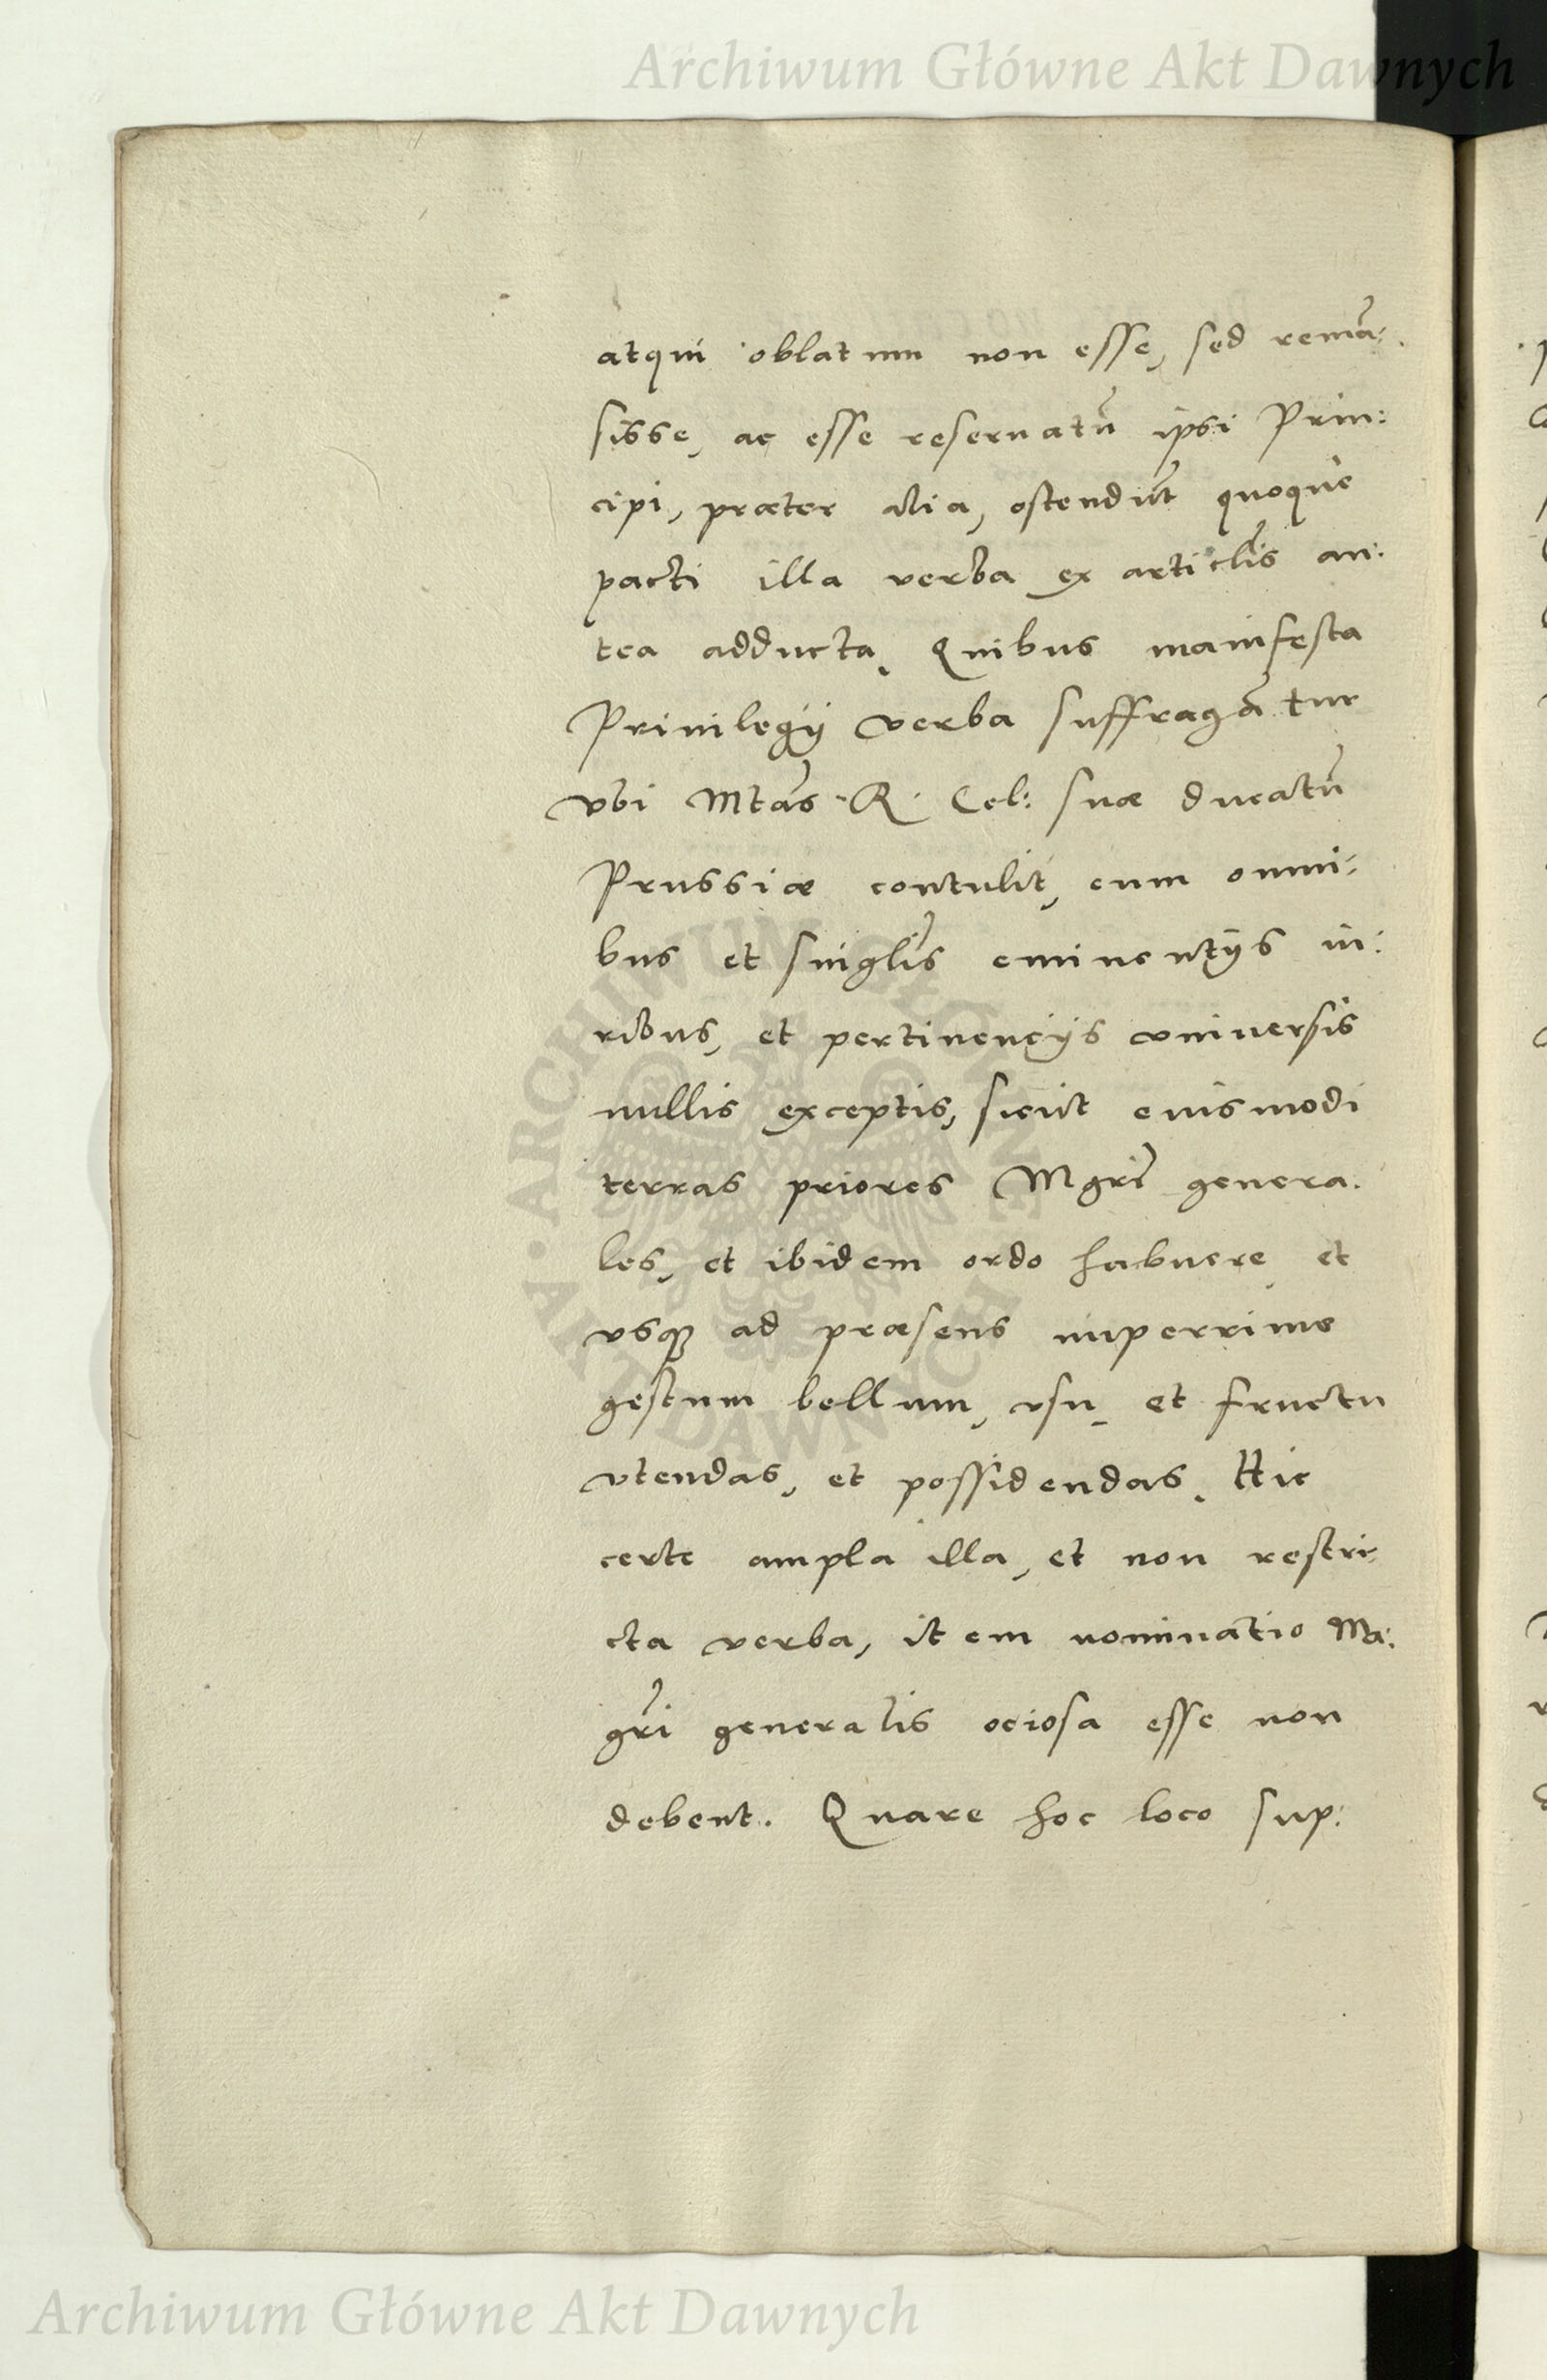 Archiwum Główne Akt Dawnych
atqui oblatum non esse, sed remã:
sisse, ac esse reseruatũ ipsi Prin:
cipi, præter alia, ostendũt quoque
pacti illa verba ex articlis an:
tea adducta, Quibus manifesta
Priuilegÿ verba suffragãtur
vbi Mtas R. Cel: suæ ducatũ
Prussiæ contulit, cum omni:
bus et singlis eminentÿs iu:
ribus, et pertinencÿs vniuersis
nullis exceptis, sicut euismodi
terras priores Mgri genera:
les, et ibidem ordo habuere, et
vsq ad præsens nuperrime
gestum bellum, vsu, et fructu
vtendas, et possidendas. Hic
certe ampla illa, et non restri:
cta verba, item nominatio Ma:
gri generalis ociosa esse non
debent. Quare hoc loco sup:
ARCHIWUM GŁÓWNE AKT DAWNYCH
Archiwum Główne Akt Dawnych